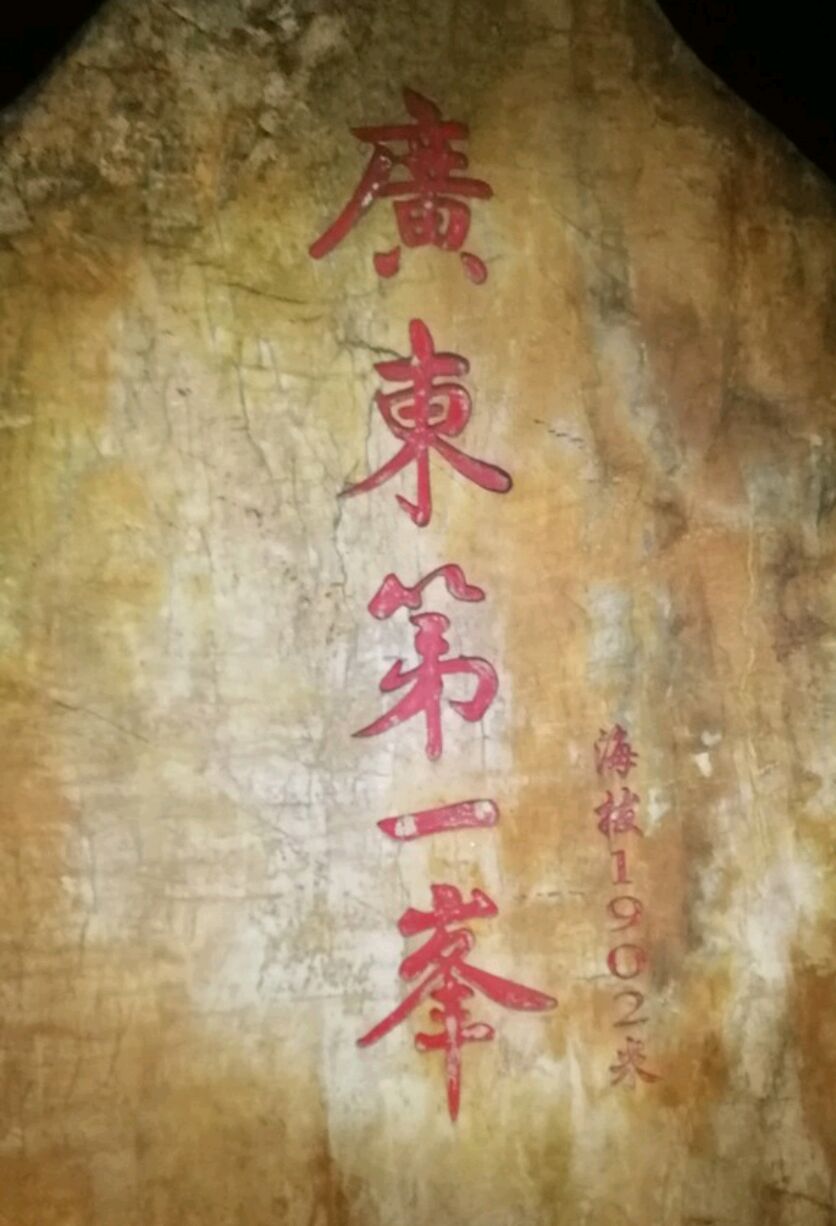 廣東第一峯
海拔1902米